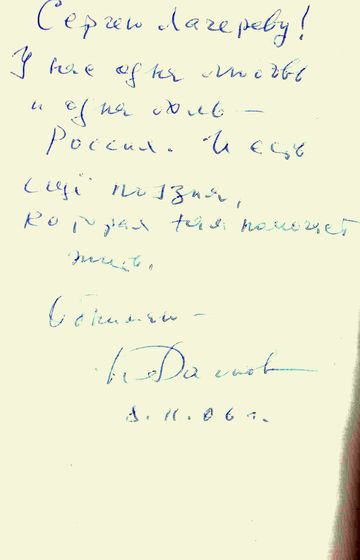 Сергею Лагереву!
У нас одна любовь
и одна боль –
Россия. И есть
ещё поэзия,
которая нам помогает
жить.
Обнимаю –
.11.06 г.